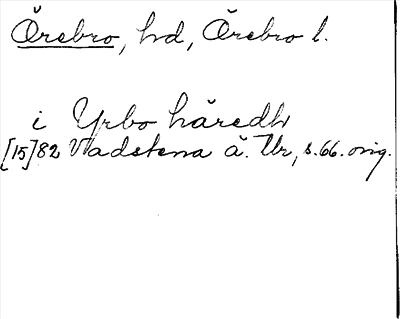 Örebro, hd, Örebro l.
i Yrbo häredh
[15]82 Vadstena ä. Ur, s.66. orig.